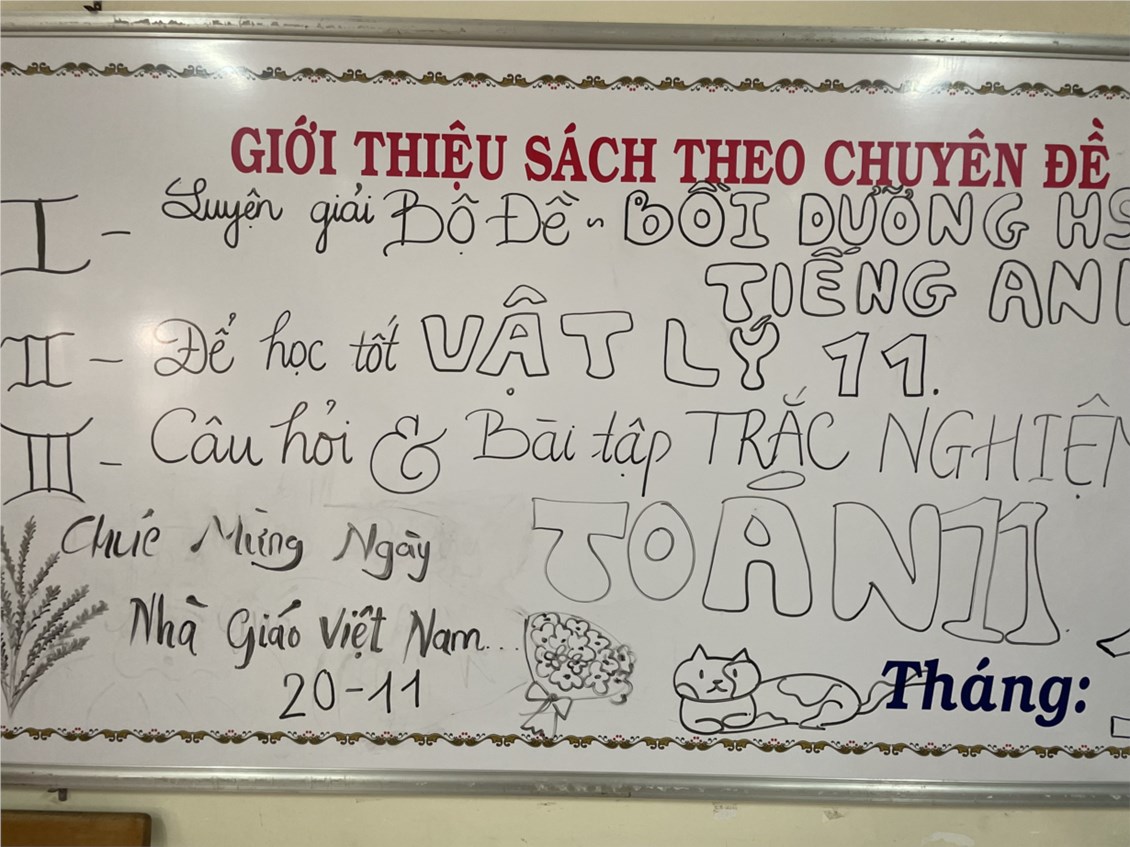 GIỚI THIỆU SÁCH THEO CHUYÊN ĐỀ
I - Luyện giải Bộ Đề ~ BỒI DƯỠNG HS
TIẾNG AN
II - Để học tốt VẬT LÝ 11.
III - Câu hỏi & Bài tập TRẮC NGHIỆM
TOÁN 11
Chúc Mừng Ngày
Nhà Giáo Việt Nam...
20-11
Tháng: